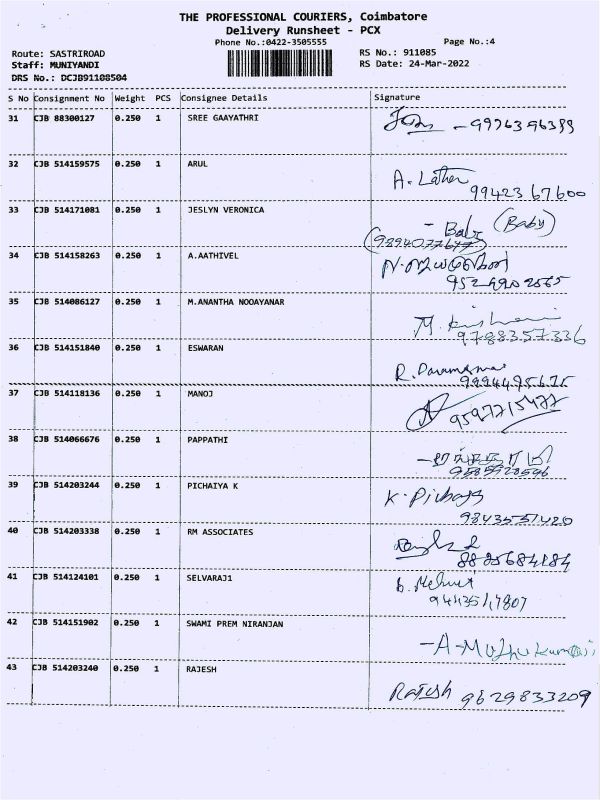 THE PROFESSIONAL COURIERS, Coimbatore
Delivery Runsheet - PCX
Phone No.:0422-3505555 Page No.:4
Route: SASTRIROAD RS No.: 911085
Staff: MUNIYANDI RS Date: 24-Mar-2022
DRS No.: DCJB91108504
S No Consignment No Weight PCS Consignee Details Signature
31 CJB 88300127 0.250 1 SREE GAAYATHRI
32 CJB 514159575 0.250 1 ARUL
A. Latha
99423 67600
33 CJB 514171081 0.250 1 JESLYN VERONICA
- Baby (Baby)
(9894077677)
34 CJB 514158263 0.250 1 A.AATHIVEL
35 CJB 514086127 0.250 1 M.ANANTHA NOOAYANAR
9788357336
36 CJB 514151840 0.250 1 ESWARAN
9994495675
37 CJB 514118136 0.250 1 MANOJ
9597715477
38 CJB 514066676 0.250 1 PAPPATHI
39 CJB 514203244 0.250 1 PICHAIYA K
9843551420
40 CJB 514203338 0.250 1 RM ASSOCIATES
8825684184
41 CJB 514124101 0.250 1 SELVARAJ1
42 CJB 514151902 0.250 1 SWAMI PREM NIRANJAN
-A-Muthukumar
43 CJB 514203240 0.250 1 RAJESH
Rajesh 9629833209